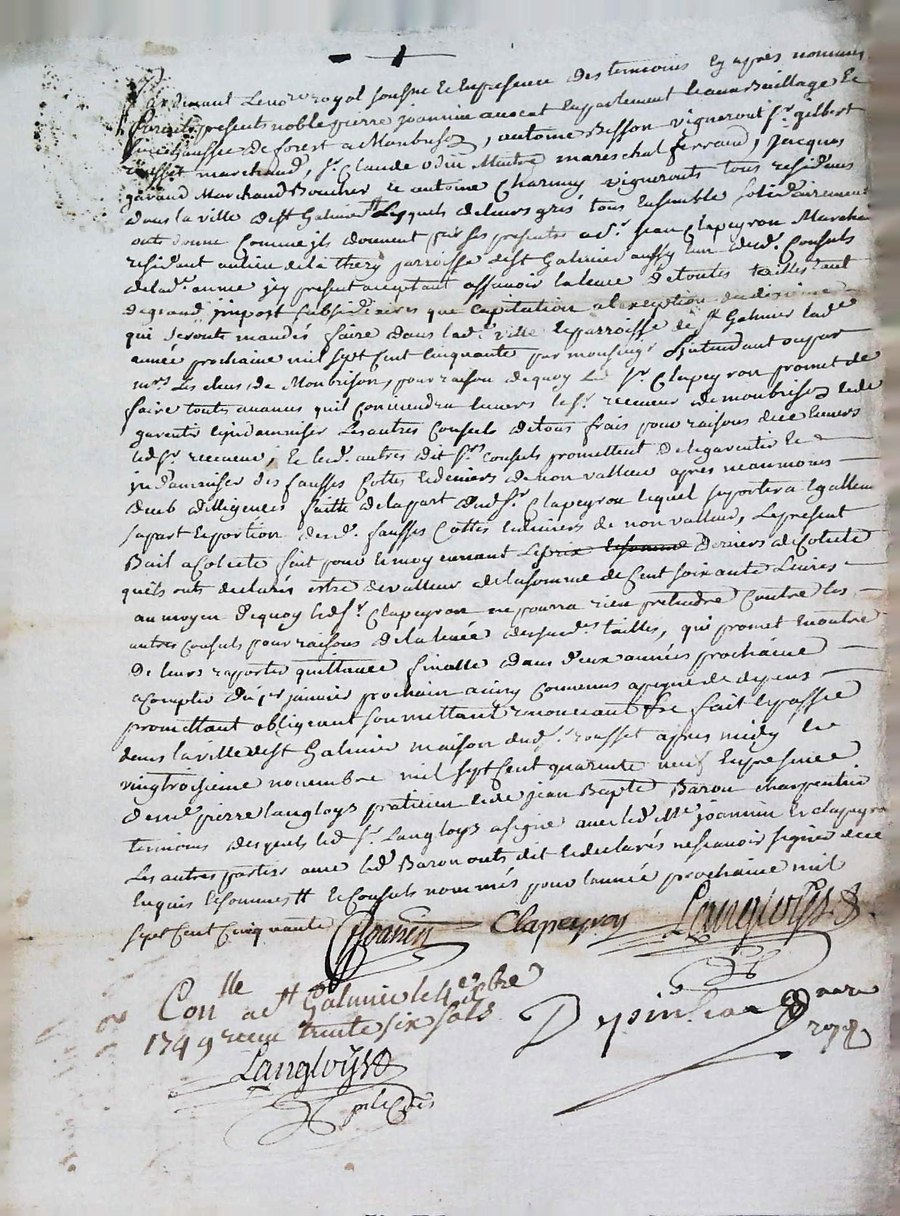 Pardevant le no.re royal sousné et en presence des temoins cy apres nommes
furent presents noble pierre joannin avocat en parlement et aux Bailliage et
senechaussee de forest a Monbrison, antoine Bisson vigneront, s.r gilbert
rousset marchand, s.r Claude odin Maitre mareschal ferrand, Jacques
giraud Marchand Boucher et antoine Charmy vigneronts tous residants
dans la ville de st Galmier lesquels de leurs grés tous Ensemble solidairement
ont donne Comme jls donnent par ses presentes a s.r jean Clapeyron Marchand
residant au lieu de la thery parroisse de st Galmier aussy un desd. Consuls
de lad. annee jcy present acceptant assavoir la levee de toutes tailles tant
de grand jmpost subsidiaires que Capitation a l'exception du dixieme
qui seronts mandés faire dans lad. ville et parroisse de st Galmier lad.
année prochaine mil sept Cent Cinquante par monseig.r L'jntendant ou par
mrs Les elus de Monbrison, pour raison de quoy led. s.r Clapeyron promet de
faire touts avances quil Conviendra Envers le sr. receveur de monbrison et de
garentir et jndamniser Les autres Consuls de tous frais pour raisons dice Envers
led. sr receveur, Et les d. autres dit s.rs Consuls promettent de le garentir et
jndamniser des fausses Cottes et deniers de non valleur après neanmoins
deub diligences faitte de la part dud. sr. Clapeyron lequel suportera Egallem
sa part et portion desd. fausses Cottes et deniers de non valleur, Le present
Bail a Colecte fait pour et moyennant Les deniers de Colecte
quils onts declarés estre de valleur de la somme de Cent soixante Livres
au moyen de quoy led. s.r Clapeyron ne pourra rien pretendre Contre les
autres Consuls pour raisons de la levée desd. tailles, qui promet En outre
de leurs raporter quittance finalle dans deux années prochaine
a Compter du 1er janvier prochain ainsy Convenus a peyne de depens
promettant obligeant soumettant renonceant &c fait et passé
dans la ville de st Galmier maison dud. s.r rousset apres midy le
vingtroisieme novembre mil sept Cent quarante neuf En presence
de me. pierre langloys praticien et de jean Bapte Baron charpentier
temoins desquels led. s.r Langloys a signé avec led. Me joannin et clapeyron
Les autres parties avec led. Baron onts dit et declarés ne scavoir signer de ce
Enquis et sommes et Consuls nommés pour l'année prochaine mil
sept Cent Cinquante
Joanin Clapeyron Langloÿs
Con.lle a st Galmier le
1749 receu trente six sols
Langloÿs
Depinhac no.re
royal